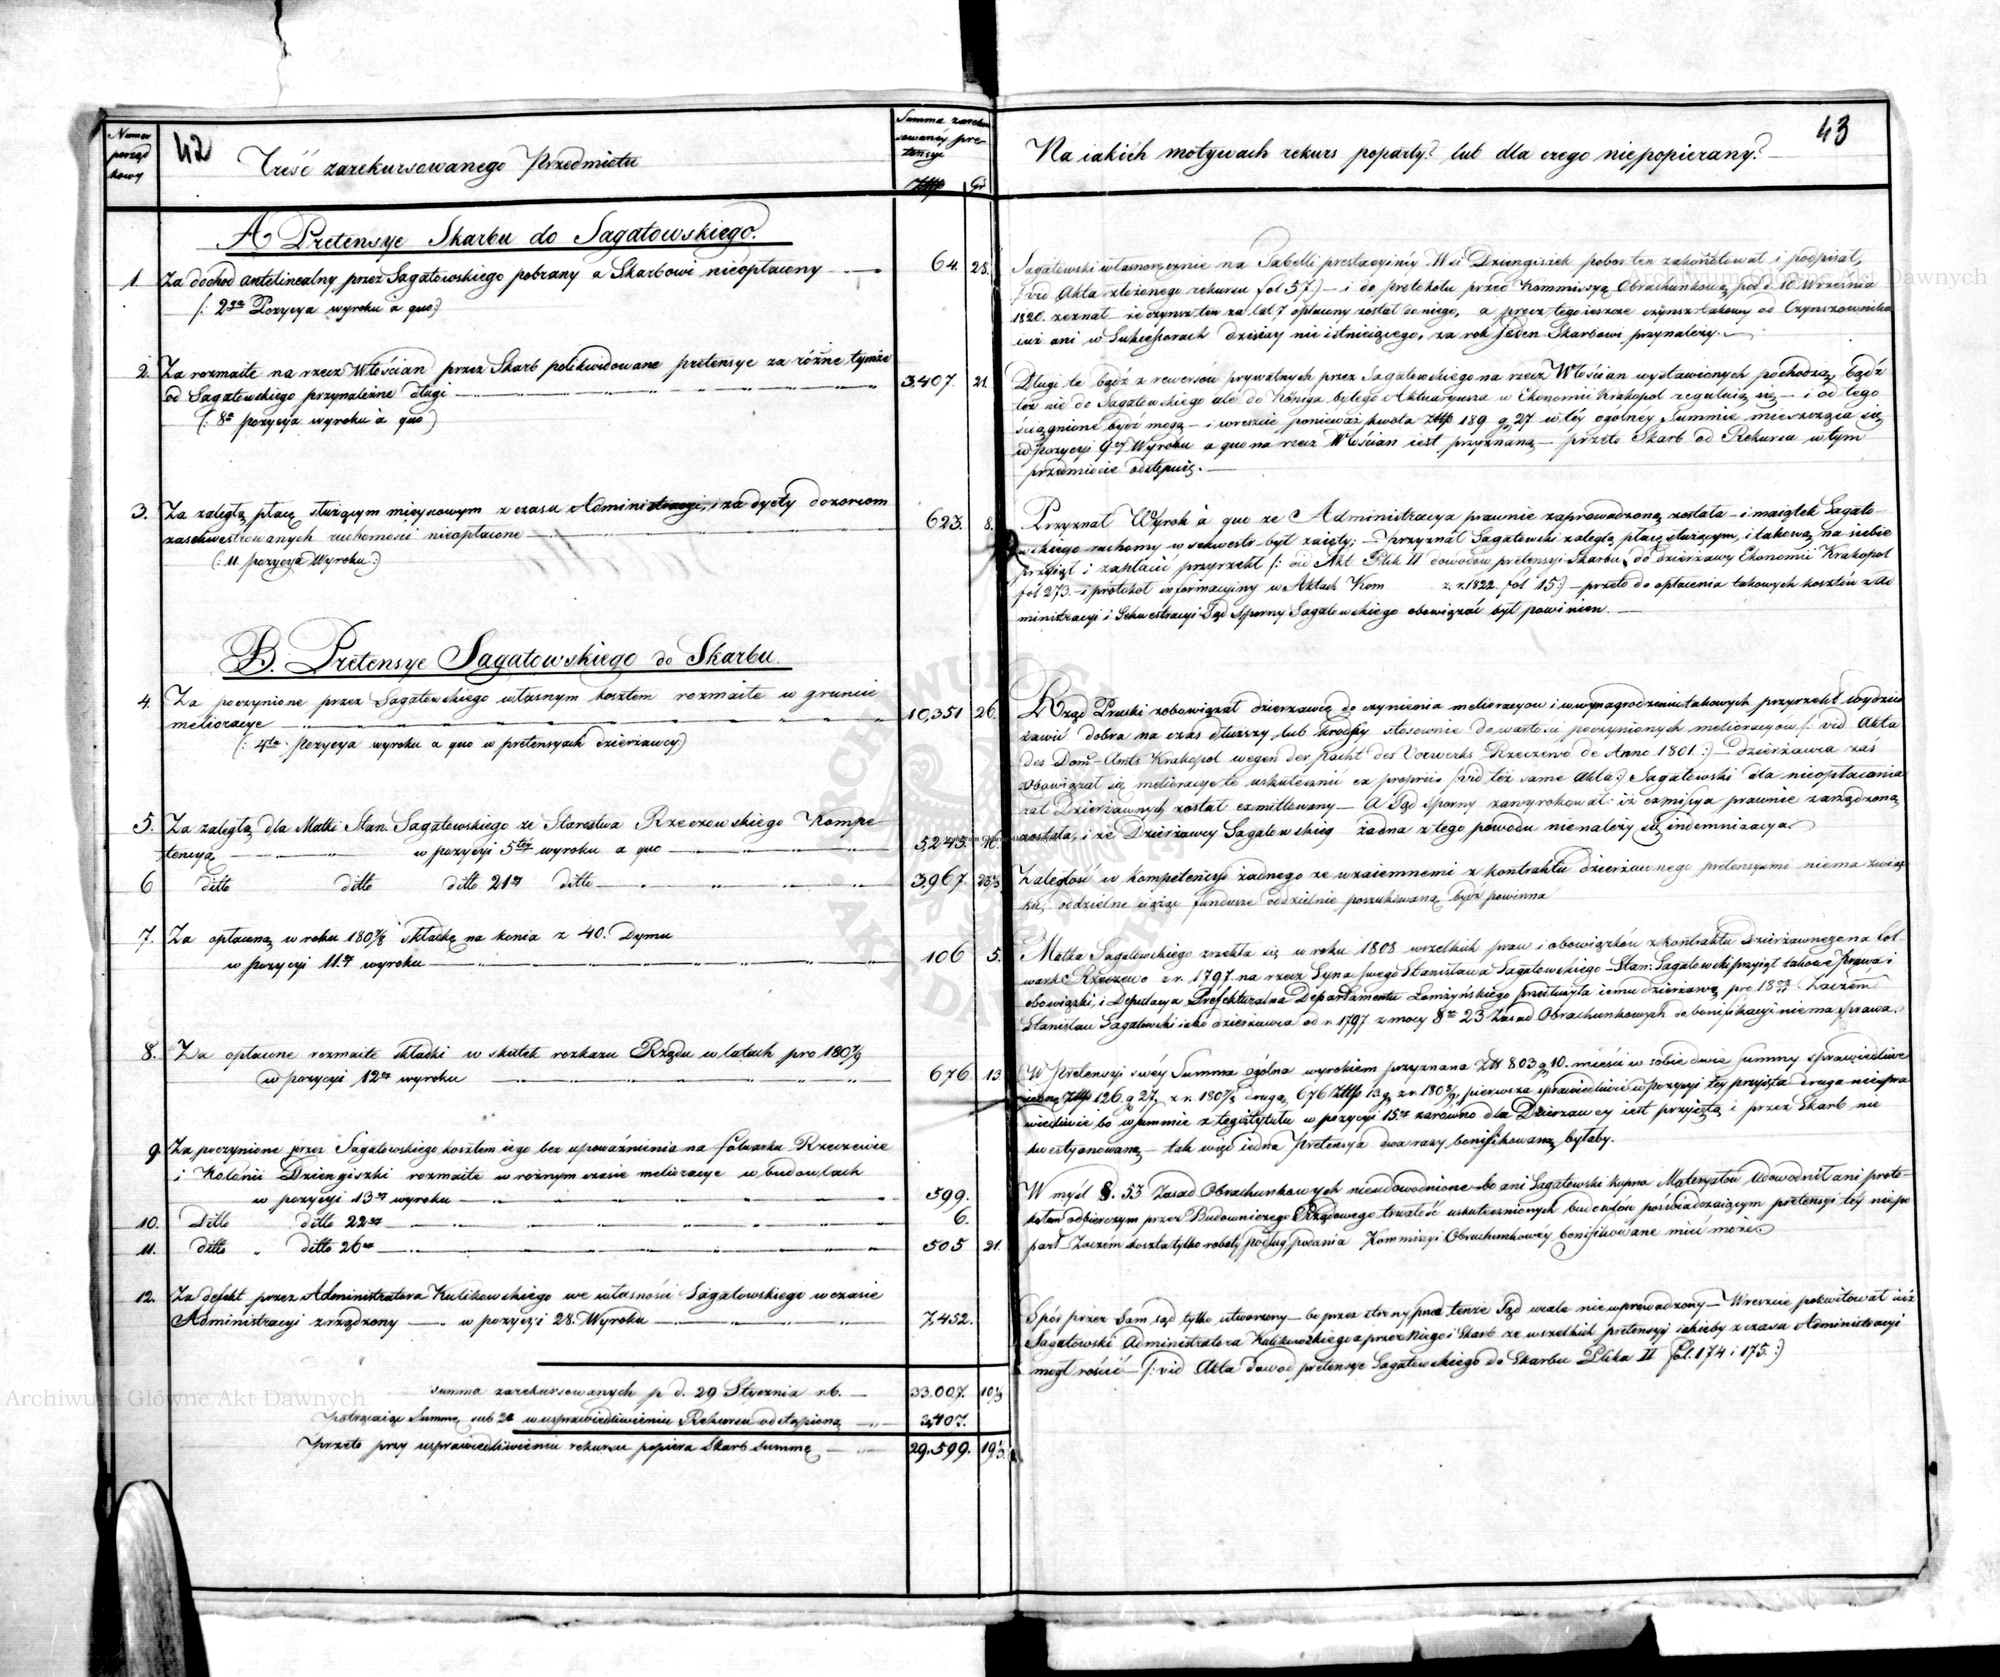 42
Numer
porząd
kowy
Treść zarekursowanego Przedmiotu
Summa zarekur
sowanéy pre-
tensyi
Złłp
Gr
A Pretensye Skarbu do Sagatowskiego.
1. Za dochod antelinealny przez Sagatowskiego pobrany a Skarbowi nieopłacony 64. 28.
(: 2ga Pozycya wyroku à quo:)
2. Za rozmaite na rzecz Włościan przez Skarb polikwidowane pretensye za różne tymże
od Sagatowskiego przynależne długi 3407. 21.
(: 8a pozycya wyroku à quo)
3. Za zaległą płacę służącym mieyscowym z czasu Administracyi, i za dyety dozorcom 623. 8.
zasekwestrowanych ruchomości nieopłacone
(: 11. pozycya Wyroku:)
B. Pretensye Sagatowskiego do Skarbu.
4. Za poczynione przez Sagatowskiego własnym kosztem rozmaite w gruncie
melioracye 10,351 26.
(: 4ta Pozycya wyroku a quo w pretensyach dzierżawcy:)
5. Za zaległą dla Matki Stan. Sagatowskiego ze Starostwa Rzeczowskiego Kompe
tencyą w pozycyi 5tey wyroku a quo 5245.
6 ditto ditto ditto 21ey ditto 3,967. 23⅓
7. Za opłaconą w roku 1807/8 składkę na konia z 40. Dymu
w pozycyi 11.ey wyroku 106 5.
8. Za opłacone rozmaite składki w skutek rozkazu Rządu w latach pro 1808/9
w pozycyi 12ey wyroku 676 13
9. Za poczynione przez Sagatowskiego kosztem iego bez upoważnienia na folwarku Rzeczewie
i Kolonii Dziengiszki rozmaite w różnym czasie melioracye w budowlach
w pozycyi 13ey wyroku 599.
10. Ditto ditto 22ey 6.
11. ditto „ ditto 26ey 505 21.
12. Za defekt przez Administratora Kulikowskiego we własności Sagatowskiego w czasie
Administracyi zrządzony w pozycyi 28. Wyroku 7452.
summa zarekursowanych p d. 29 Stycznia r.b. 33.007. 10⅓
potrącaiąc Summę sub 2a w usprawiedliwieniu Rekursu odstąpioną 3,407.
przeto przy usprawiedliwieniu rekursu popiera Skarb summę 29.599. 19⅓.
43
Na iakich motywach rekurs poparty? lub dla czego niepopierany?
Sagatowski własnoręcznie na Tabelli prestacyiney Wsi Dziengiszek pobor ten zakonotował i podpisał,
(: vid Akta złożonego rekursu fol 57:) i do protokołu przed Kommissyą Obrachunkową pod d. 10 Września
1820. zeznał że czynsz ten za lat 7 opłacany został do niego, a przez tego ieszcze czynsz takowy od Czynszownika
iuż ani w Sukcessorach dzisiay nie istnieiącego, za rok jeden Skarbowi przynależy.
Długi te bądź z rewersow prywatnych przez Sagatowskiego na rzecz Włościan wystawionych pochodzą, bądź
też nie do Sagatowskiego ale do Königa byłego Aktuaryusza w Ekonomii Krakopol regulują się i od tego
sciągnione bydź mogą i wreszcie ponieważ kwota Złłp 189 g. 27 w téy ogólnéy Summie mieszcząca się
w pozycyi 9ey Wyroku a quo na rzecz Włościan iest przyznaną przeto Skarb od Rekursu w tym
przedmiocie odstępuie.
Przyznał Wyrok à quo że Administracya prawnie zaprowadzoną została i maiątek Sagato-
wskiego ruchomy w sekwestr był zaięty; przyznał Sagatowski zaległą płacę służącym, i takową na siebie
przyiął i zapłacić przyrzekł (: vid Akt Plik II dowodow pretensyi Skarbu, do dzierżawy Ekonomii Krakopol
fol 273. i protokół informacyiny w Aktach Kom z r. 1822. fol 15:) przeto do opłacenia takowych kosztów z Ad
ministracyi i Sekwestracyi Sąd Sporny Sagatowskiego obowiązać był powinien.
Rząd Pruski zobowiązał dzierżawcę do czynienia melioracyow i w wynagrodzeniu takowych przyrzekł wydzier
żawić dobra na czas dłuższy lub krotszy stosownie do wartości poczynionych melioracyow (: vid Akta
des Dom-Amts Krakopol wegen der Pacht des Vorwerks Rzeczewo de Anno 1801:) dzierżawca zaś
obowiązał się melioracye te uskutecznić ex propriis (: vid też same akta:) Sagatowski dla nieopłacania
rat Dzierżawnych został exmittowany A Sąd Sporny zawyrokował: iż exmissya prawnie zarządzoną
została, i że Dzierżawcy Sagatowskiey żadna z tego powodu nienależy się indemnizacya.
Zaległość w kompetencyi żadnego ze wzaiemnemi z kontraktu dzierżawnego pretensyami niema związ
ku, oddzielne ciążąc fundusze oddzielnie poszukiwaną bydź powinna
Matka Sagatowskiego zrzekła się w roku 1808 wszelkich praw i obowiązków z kontraktu Dzierżawnego na fol-
wark Rzeczewo z r. 1797. na rzecz Syna swego Stanisława Sagatowskiego Stan: Sagatowski przyiął takowe prawa i
obowiązki, i Deputacya Prefekturalna Departamentu Łomżyńskiego przedłużyła iemu dzierżawę pro Zaczém
Stanisław Sagatowski iako dzierżawca od r. 1797 z mocy § 23 Zasad Obrachunkowych do bonifikacyi niema prawa.
W Pretensyi swéy Summa ogólna wyrokiem przyznana Złł 803 g 10. mieści w sobie dwie summy sprawiedliwe
iedną Złłp 126. g 27. z r. 1807/8 drugą 676 Złłp 13 g z r. 1808/9, pierwsza sprawiedliwie w pozycyi téy przyięta druga niespra
wiedliwie bo w summie z tego tytułu w pozycyi 15ey zarówno dla Dzierzawcy iest przyiętą i przez Skarb nie
kwestyonowaną tak więc iedna Pretensya dwa razy bonifikowaną byłaby.
W myśl §. 53 Zasad Obrachunkowych nieudowodnione bo ani Sagatowski kupna Materyałów udowodnił ani proto-
kołem odbiorczym przez Budowniczego Rządowego trwałość uskutecznionych budowlów poświadczaiącym pretensyi téy niepo
parł Zaczém koszta tylko roboty podług podania Kommissyi Obrachunkowéy bonifikowane mieć może.
Spór przez Sam sąd tylko utworzony bo przez strony przed tenże Sąd wcale niewprowadzony Wreszcie pokwitował iuż
Sagatowski Administratora Kulikowskiego a przez Niego i Skarb ze wszelkich pretensyi iakieby z czasu Administracyi
mogł rościć (: vid Akta dowod pretensye Sagatowskiego do Skarbu Plika II fol. 174 i 175:)
Archiwum Główne Akt Dawnych
Archiwum Główne Akt Dawnych